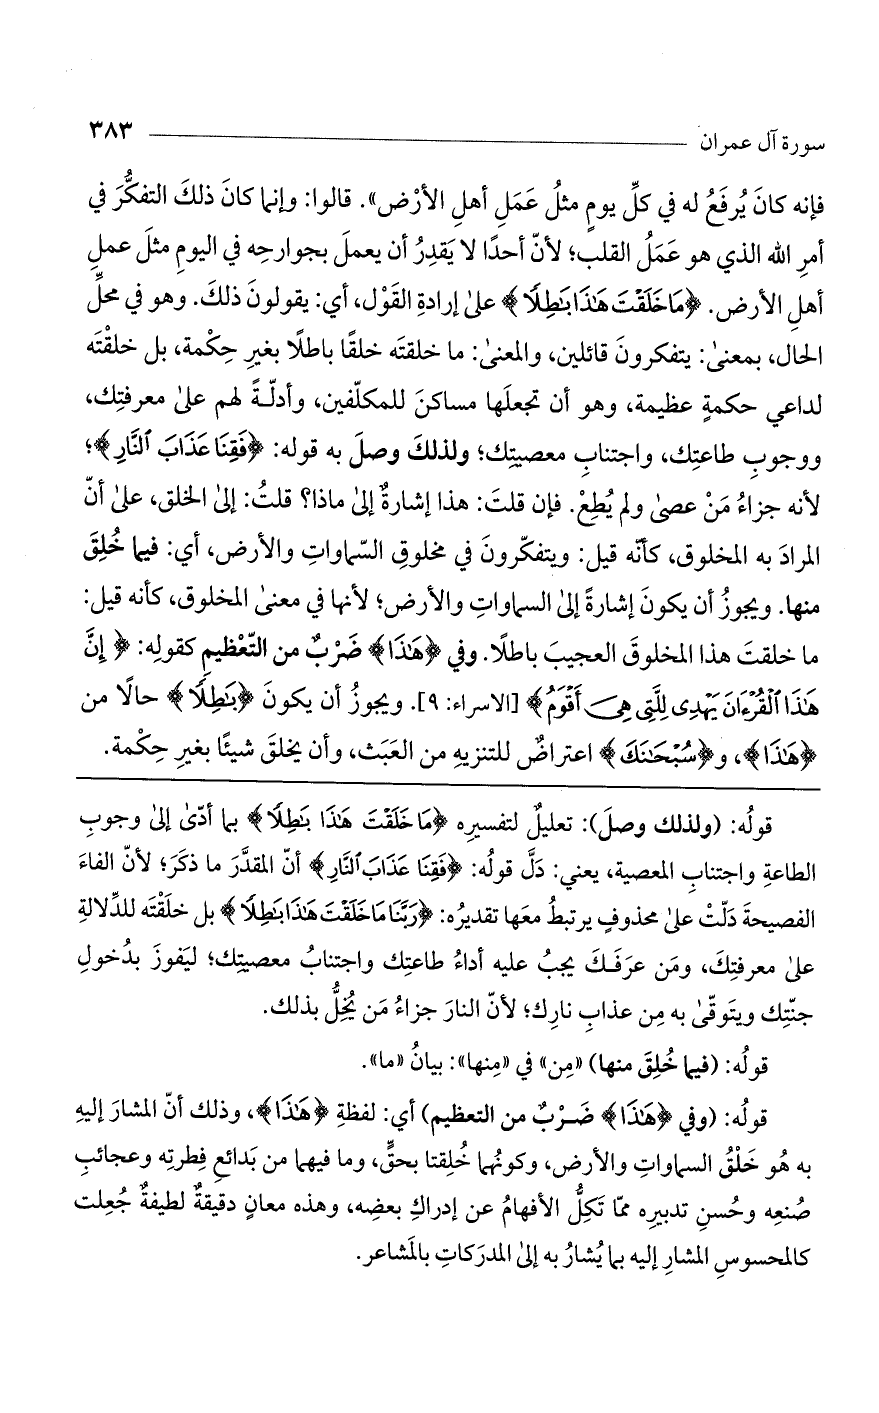 سورة آل عمران ٣٨٣
فإنه كانَ يُرفَعُ له في كلِّ يومٍ مثلُ عَمَلِ أهلِ الأرْض». قالوا: وإنما كانَ ذلكَ التفكُّرَ في
أمرِ الله الذي هو عَمَلُ القلب؛ لأنّ أحدًا لا يَقدِرُ أن يعملَ بجوارحِه في اليومِ مثلَ عملِ
أهلِ الأرض. ﴿مَا خَلَقْتَ هَٰذَا بَٰطِلًا﴾ علىٰ إرادةِ القَوْل، أي: يقولونَ ذلكَ. وهو في محلِّ
الحال، بمعنىٰ: يتفكرونَ قائلين، والمعنىٰ: ما خلقتَه خلقًا باطلًا بغيرِ حِكْمة، بل خلقْتَه
لداعي حكمةٍ عظيمة، وهو أن تجعلَها مساكنَ للمكلّفين، وأدلّةً لهم علىٰ معرفتِك،
ووجوبِ طاعتِك، واجتنابِ معصيتِك؛ ولذلكَ وصلَ به قوله: ﴿فَقِنَا عَذَابَ ٱلنَّارِ﴾؛
لأنه جزاءُ مَنْ عصىٰ ولم يُطِعْ. فإن قلتَ: هذا إشارةٌ إلىٰ ماذا؟ قلتُ: إلىٰ الخلق، علىٰ أنّ
المرادَ به المخلوق، كأنّه قيل: ويتفكّرونَ في مخلوقِ السّماواتِ والأرض، أي: فيما خُلِقَ
منها. ويجوزُ أن يكونَ إشارةً إلىٰ السماواتِ والأرض؛ لأنها في معنىٰ المخلوق، كأنه قيل:
ما خلقتَ هذا المخلوقَ العجيبَ باطلًا. وفي ﴿هَٰذَا﴾ ضَرْبٌ من التّعْظيمِ كقولِه: ﴿إِنَّ
هَٰذَا ٱلْقُرْءَانَ يَهْدِى لِلَّتِى هِىَ أَقْوَمُ﴾ [الاسراء: ٩]. ويجوزُ أن يكونَ ﴿بَٰطِلًا﴾ حالًا من
﴿هَٰذَا﴾، و﴿سُبْحَٰنَكَ﴾ اعتراضٌ للتنزيهِ من العَبَث، وأن يخلقَ شيئًا بغيرِ حِكْمة.
قولُه: (ولذلك وصلَ): تعليلٌ لتفسيرِه ﴿مَا خَلَقْتَ هَٰذَا بَٰطِلًا﴾ بما أدّىٰ إلىٰ وجوبِ
الطاعةِ واجتنابِ المعصية، يعني: دَلَّ قولُه: ﴿فَقِنَا عَذَابَ ٱلنَّارِ﴾ أنّ المقدَّرَ ما ذكَرَ؛ لأنّ الفاءَ
الفصيحةَ دَلّتْ علىٰ محذوفٍ يرتبطُ معَها تقديرُه: ﴿رَبَّنَا مَا خَلَقْتَ هَٰذَا بَٰطِلًا﴾ بل خلَقْتَه للدِّلالةِ
علىٰ معرفتِكَ، ومَن عرَفَكَ يجبُ عليه أداءُ طاعتِك واجتنابُ معصيتِك؛ ليَفوزَ بدُخولِ
جنّتِك ويتَوقّىٰ به مِن عذابِ نارِك؛ لأنّ النارَ جزاءُ مَن يُخِلُّ بذلك.
قولُه: (فيما خُلِقَ منها) «مِن» في «مِنها»: بيانُ «ما».
قولُه: (وفي ﴿هَٰذَا﴾ ضَرْبٌ من التعظيم) أي: لفظةِ ﴿هَٰذَا﴾، وذلك أنّ المشارَ إليهِ
به هُو خَلْقُ السماواتِ والأرض، وكونُهما خُلِقتا بحقٍّ، وما فيهما من بَدائعِ فِطرتِه وعجائبِ
صُنعِه وحُسنِ تدبيرِه ممّا تَكِلُّ الأفهامُ عن إدراكِ بعضِه، وهذه معانٍ دقيقةٌ لطيفةٌ جُعِلت
كالمحسوسِ المشارِ إليه بما يُشارُ به إلىٰ المدرَكاتِ بالمَشاعر.